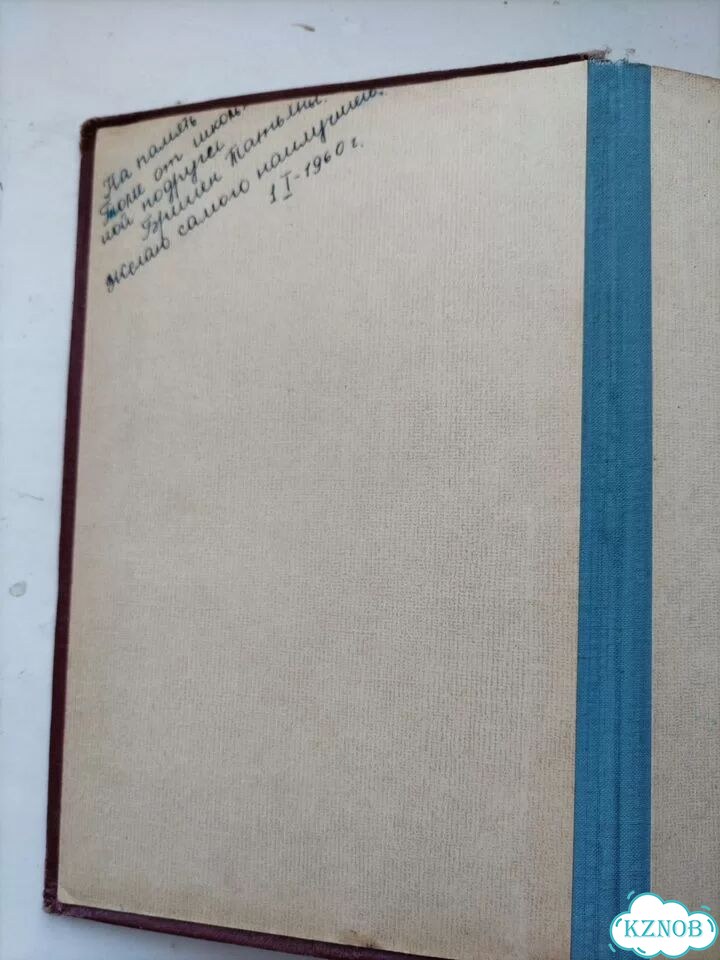 На память
Толи от школь-
ной подруги
Татьяны.
Желаю самого наилучшего.
1 I-1960 г.
KZNOB